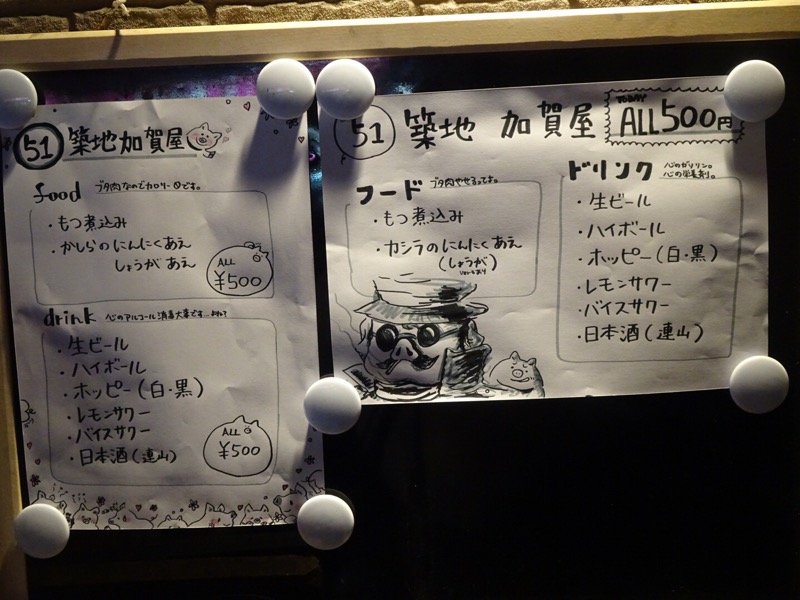 51 築地加賀屋
food ブタ肉なのでカロリー0です。
・もつ煮込み
・かしらのにんにくあえ
しょうがあえ
ALL
¥500
drink 心のアルコール消毒大事です…
・生ビール
・ハイボール
・ホッピー(白・黒)
・レモンサワー
・バイスサワー
・日本酒(連山)
ALL
¥500
51 築地 加賀屋
ALL500円
フード ブタ肉やせるってす。
・もつ煮込み
・カシラのにんにくあえ
(しょうが)
ドリンク 心のガソリン。
心の栄養剤。
・生ビール
・ハイボール
・ホッピー(白・黒)
・レモンサワー
・バイスサワー
・日本酒(連山)